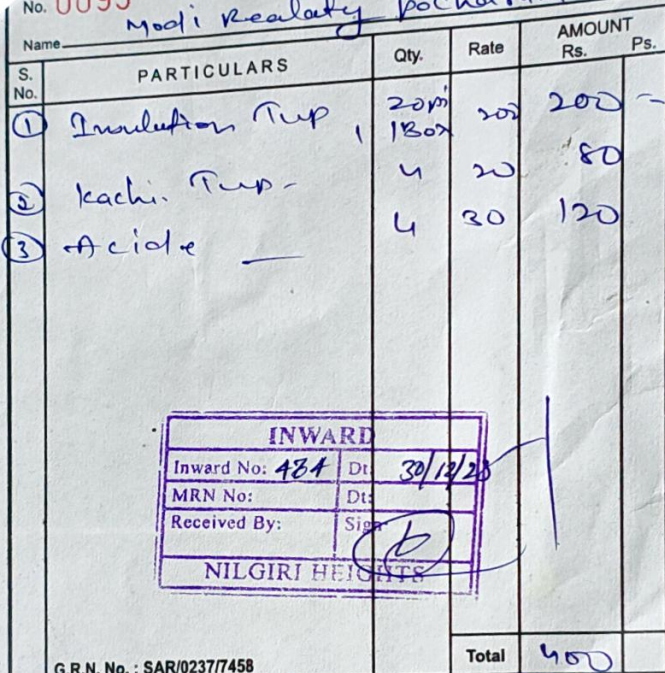 No. 0095
Name Modi Realaty
S. No. PARTICULARS Qty. Rate AMOUNT Rs. Ps.
① Insulution Tup, 20pi 1Box 200 200 -
② Kachi. Tup - 4 20 80
③ Acide — 4 30 120
INWARD
Inward No: 484 Dt: 30/12/23
MRN No: Dt:
Received By: Sign
NILGIRI HEIGHTS
Total 400
G.R.N. No. : SAR/0237/7458